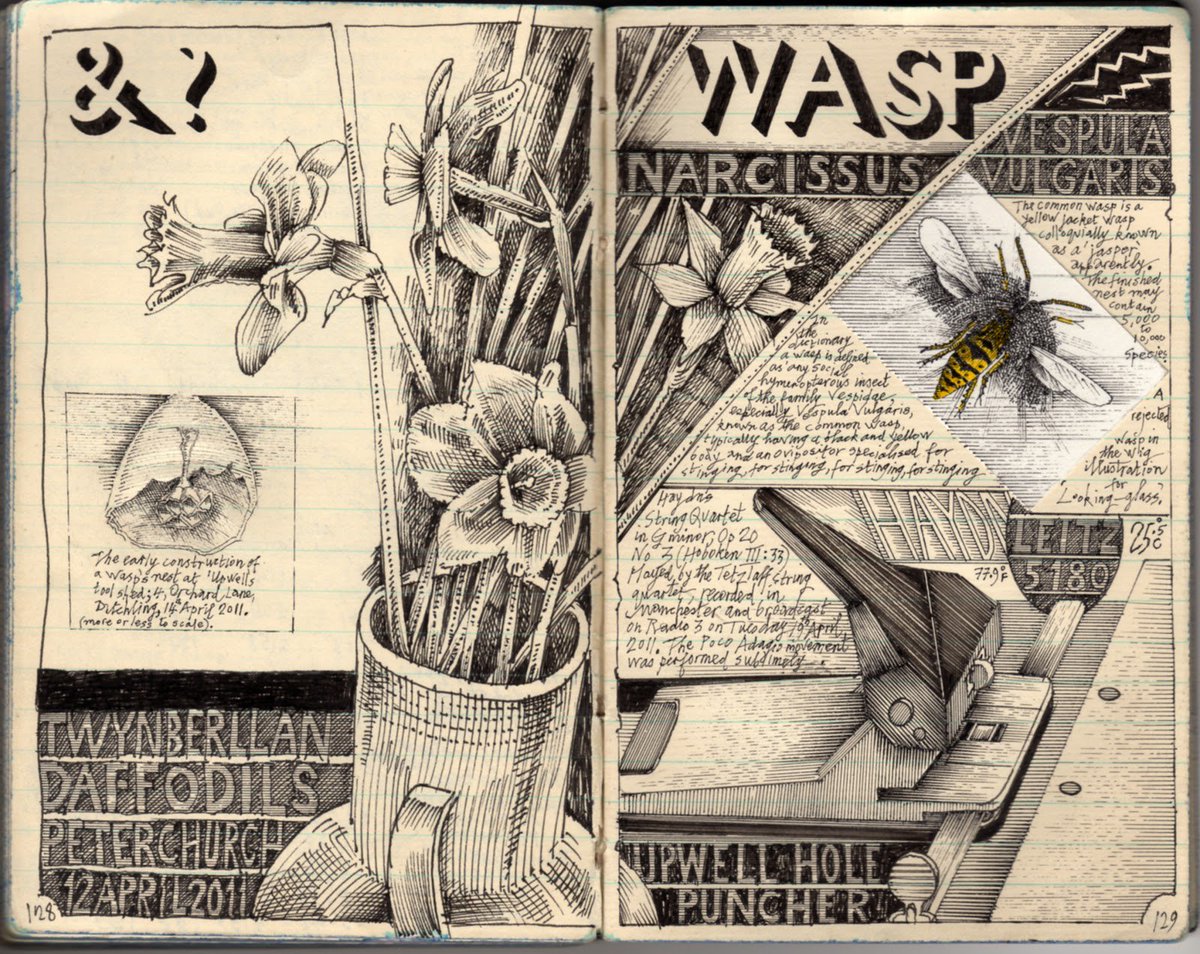 & ?
The early construction of
a wasp's nest at 'Upwells
tool shed; 4, Orchard Lane,
Ditchling, 14 April 2011.
(more or less to scale).
TWYNBERLLAN
DAFFODILS
PETERCHURCH
12 APRIL 2011
128
WASP
NARCISSUS
VESPULA
VULGARIS
The common wasp is a
yellow jacket wasp
colloquially known
as a 'jasper'
apparently.
The finished
nest may
contain
5,000
to
10,000
species.
A
rejected
wasp in
the wig
illustration
for
Looking-glass.
In
the
dictionary
a wasp is defined
as any social
hymenopterous insect
of the family Vespidae,
especially Vespula Vulgaris,
known as the common wasp,
typically having a black and yellow
body and an ovipositor specialised for
stinging, for stinging, for stinging, for stinging
Haydn's
String Quartet
in G minor, Op 20
No. 3 (Hoboken III:33)
Played by the Tetzlaff string
quartet, recorded in
Manchester and broadcast
on Radio 3 on Tuesday April,
2011. The Poco Adagio movement
was performed sublimely.
HAYDN
77.9°F
LEITZ
5180
25.5°C
UPWELL HOLE
PUNCHER
129